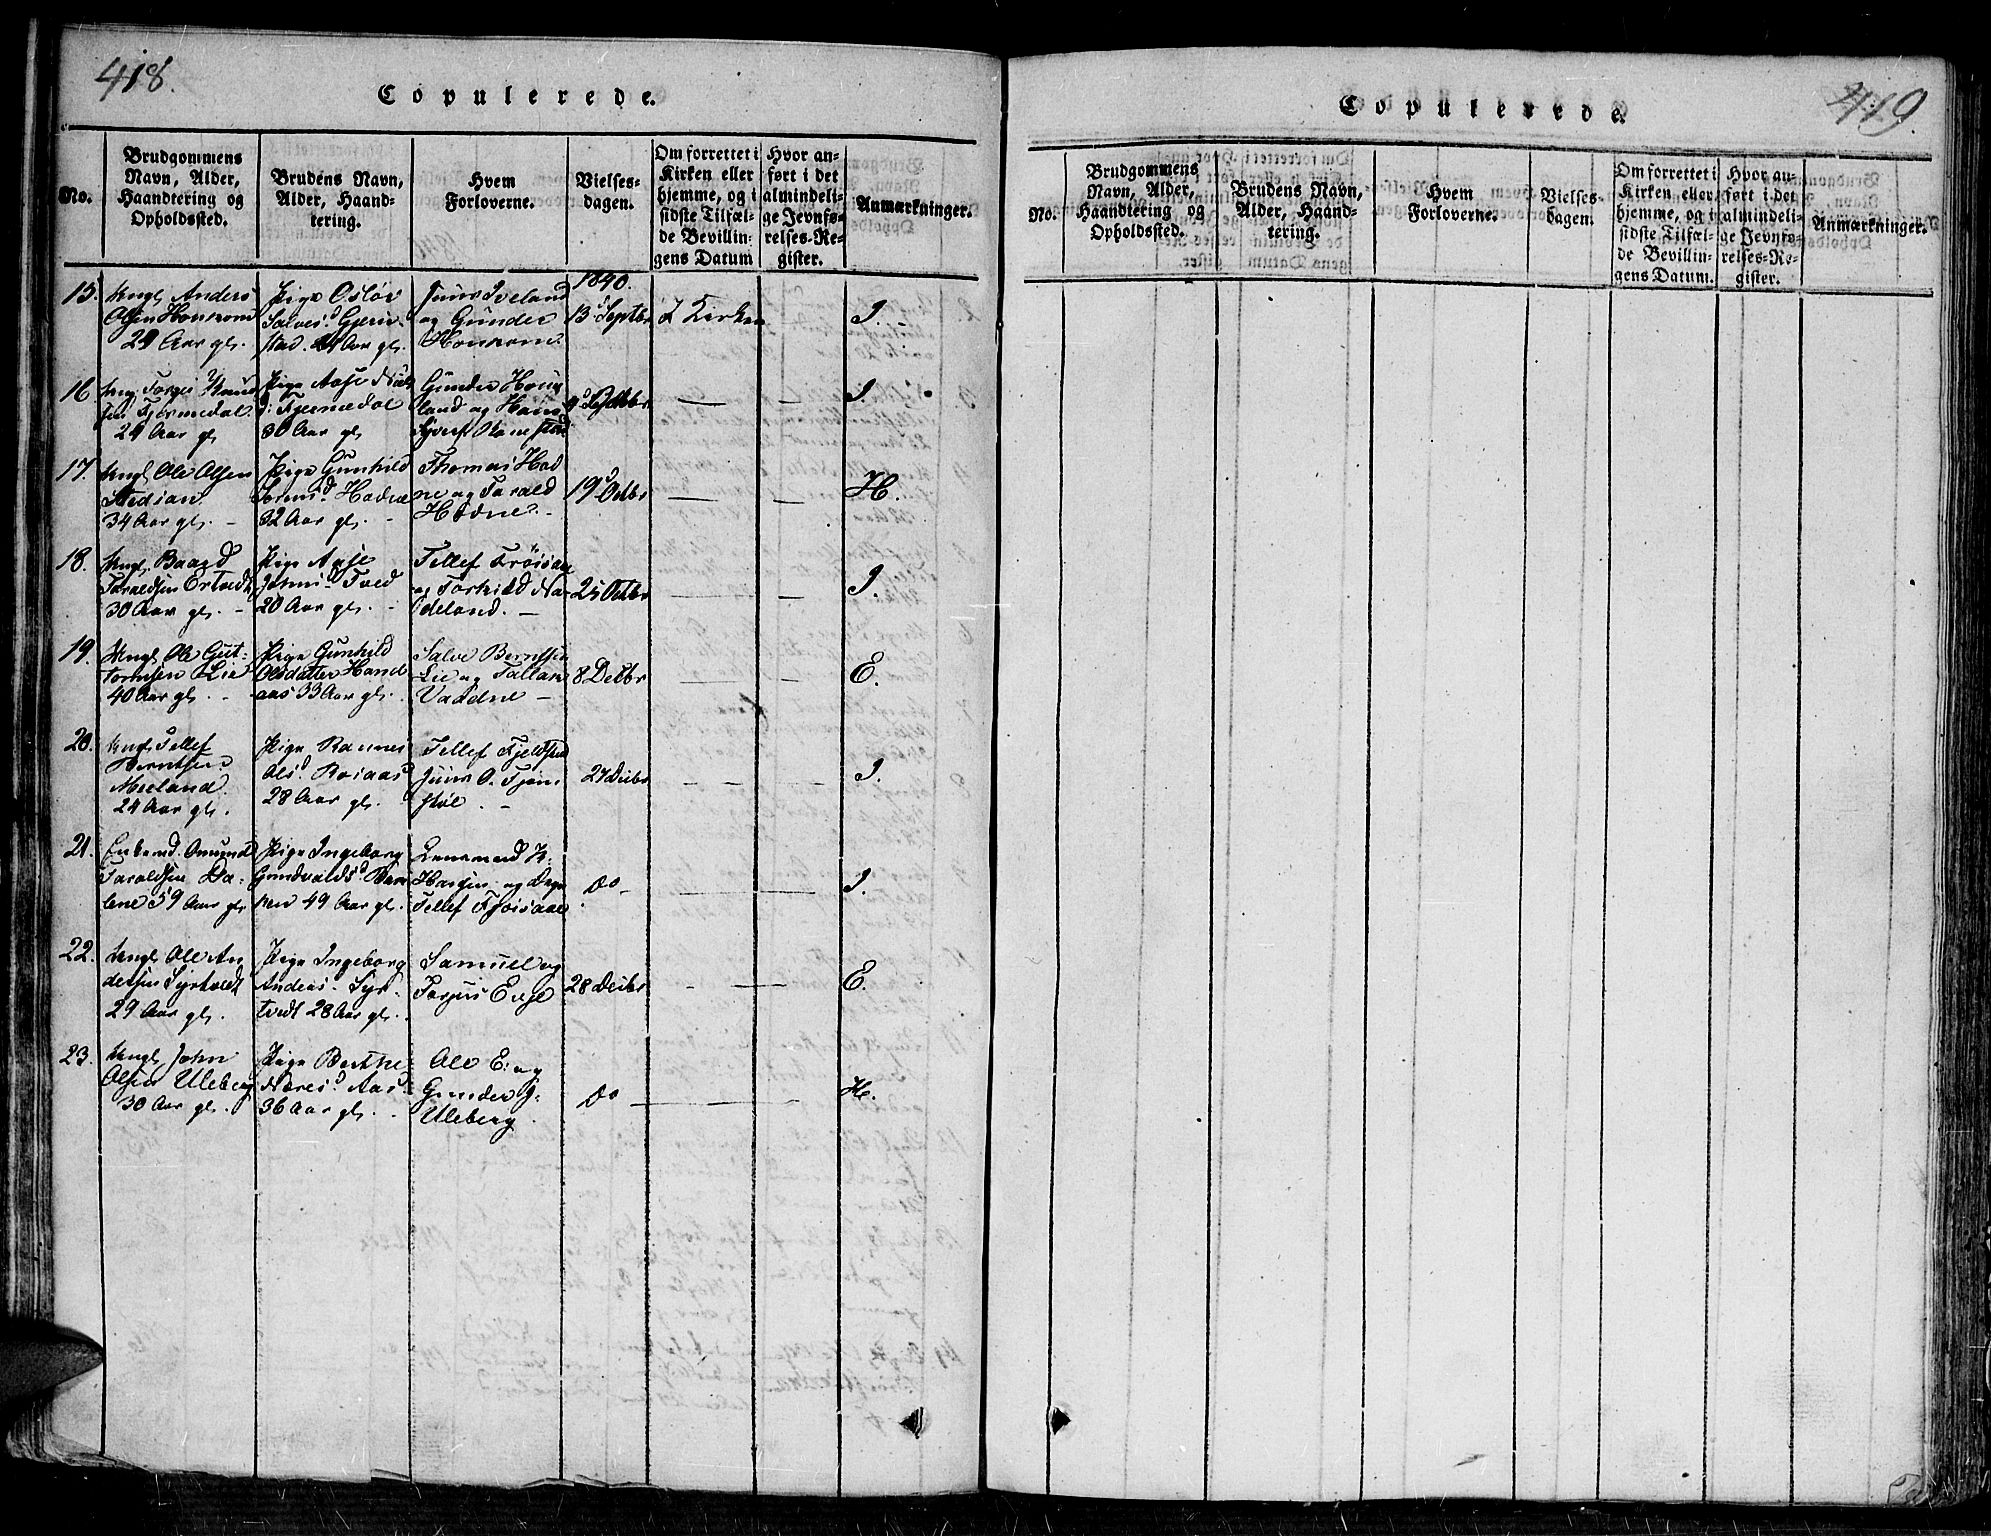 418.
Copulerede.
No.
Brudgommens
Navn, Alder,
Haandtering og
Opholdssted.
Brudens Navn,
Alder, Haand-
tering.
Hvem
Forloverne.
Vielses-
dagen.
Om forrettet i
Kirken eller
hjemme, og i
sidste Tilfæl-
de Bevillin-
gens Datum
Hvor an-
ført i det
almindeli-
ge Jevnfø-
relses-Re-
gister.
Anmærkninger.
1840.
15. Ungk Anders
Olsen
29 Aar gl.
Pige Osløv
Salvesd Gjeru-
stad. Aar gl.
Juur Iveland
og Gunder
13d Septbr
I Kirken
I.
16. Ungk Torger Knud
sen Fjermedal
24 Aar gl
Pige Aase
d: Fjermedal
30 Aar gl
Gunder Houg
land og Hans
Syvers
I.
17. Ungk Ole Olsen
34 Aar gl. -
Pige Gunhild
Hodne
32 Aar gl. -
Thomas Hod
ne og Tarald
Hodne. -
19d Octbr
H.
18. Ungk Baard
Taraldsen Ertvedt
30 Aar gl. -
Pige Aase
Johnsd Tved
20 Aar gl. -
Tellef Frøisaae
og Torkild Na-
deland. -
25 Octbr
I.
19. Ungk Ole Gut-
tormsen Lie
40 Aar gl. -
Pige Gunhild
Olsdatter Hand
aas 33 Aar gl.
Salve Berntsen
Lie og Tallak
Vaadne -
8 Decbr
E.
20. Ungk Tellef
Berntsen
Mieland.
24 Aar gl.
Pige
Olsd. Rosaas
28 Aar gl.
Tellef Fjeldstad
Juur O. Fjøm
støl. -
27 Decbr
I.
21. Enkemd. Omund
Taraldsen Da-
lene 59 Aar gl
Pige Ingeborg
Gundvaldsd. Bak
ken 49 Aar gl.
Lensmand K.
Hansen og
Tellef Frøisaae
Do -
I.
22. Ungk Ole An
dersen Syrtvedt
29 Aar gl.
Pige Ingeborg
Andersd. Syr-
tvedt 28 Aar gl.
Samuel og
Torjus Evje
28 Decbr
E.
23. Ungk John
Olsen Uleberg
30 Aar gl. -
Pige Berthe
Næresd. Aas
36 Aar gl. -
Ole E: og
Gunder G:
Uleberg
Do
H.
419.
Copulerede.
No.
Brudgommens
Navn, Alder,
Haandtering og
Opholdssted.
Brudens Navn,
Alder, Haand-
tering.
Hvem
Forloverne.
Vielses-
dagen.
Om forrettet i
Kirken eller
hjemme, og i
sidste Tilfæl-
de Bevillin-
gens Datum.
Hvor an-
ført i det
almindeli-
ge Jevnfø-
relses-Re-
gister.
Anmærkninger.